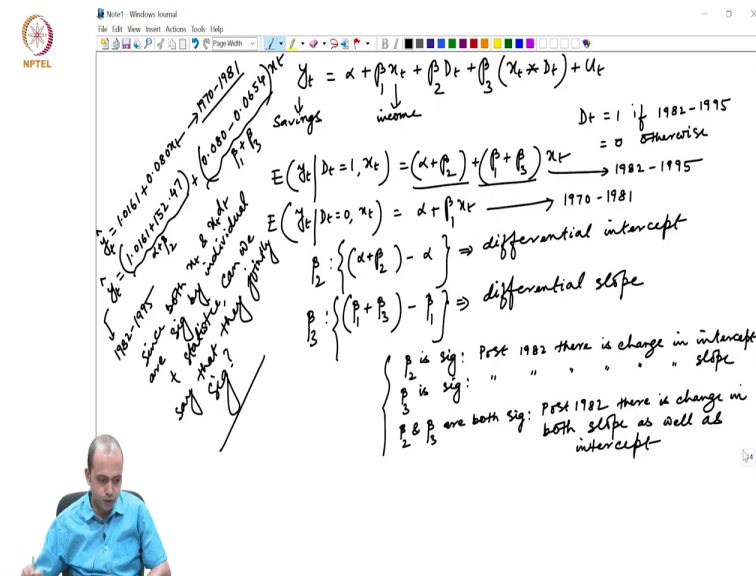 Note1 - Windows Journal
File Edit View Insert Actions Tools Help
Page Width
NPTEL
yₜ = α + β₁xₜ + β₂Dₜ + β₃(xₜ * Dₜ) + Uₜ
savings income
Dₜ = 1 if 1982-1995
= 0 otherwise
E(yₜ | Dₜ=1, xₜ) = (α+β₂) + (β₁+β₃)xₜ → 1982-1995
E(yₜ | Dₜ=0, xₜ) = α + β₁xₜ → 1970-1981
β₂ : {(α+β₂) - α} ⇒ differential intercept
β₃ : {(β₁+β₃) - β₁} ⇒ differential slope
β₂ is sig: Post 1982 there is change in intercept
β₃ is sig: " " " " " " slope
β₂ & β₃ are both sig: Post 1982 there is change in
both slope as well as
intercept
ŷₜ = 1.0161 + 0.080xₜ → 1970-1981
ŷₜ = (1.0161+152.47) + (0.080-0.0654)xₜ
α+β₂ β₁+β₃
1982-1995
since both xₜ & xₜdₜ
are sig by individual
t statistic, can we
say that they jointly
sig?